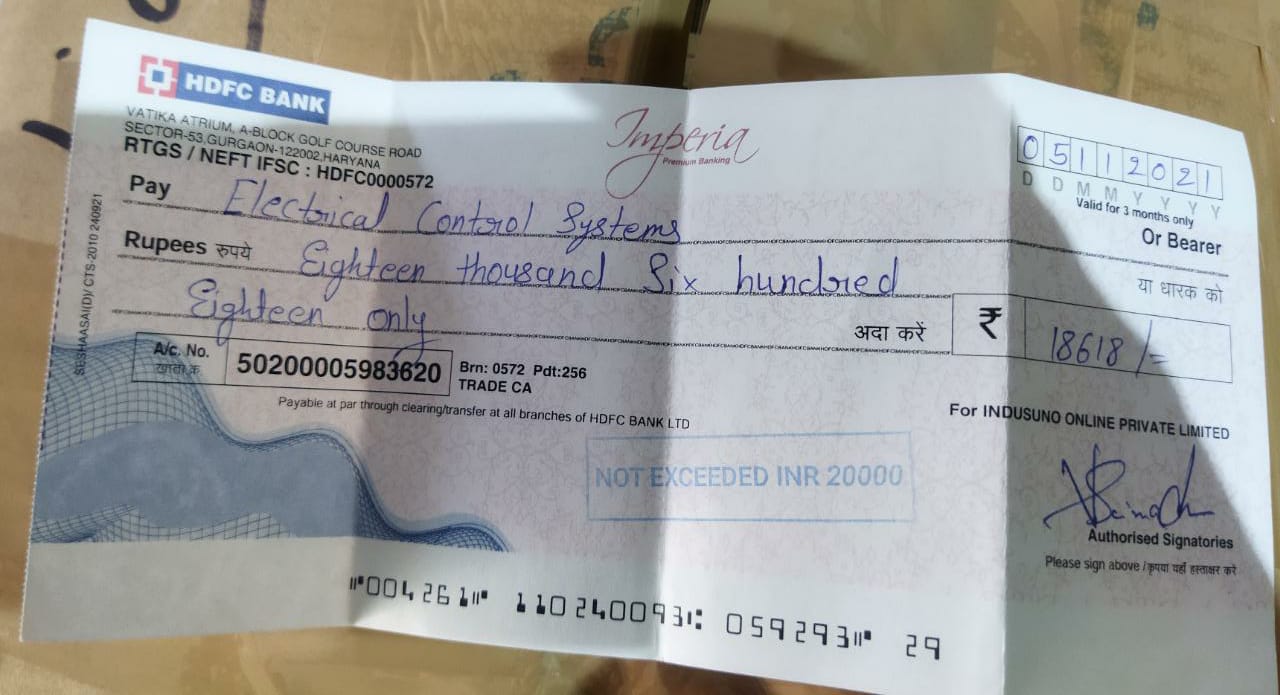 HDFC BANK
VATIKA ATRIUM, A-BLOCK GOLF COURSE ROAD
SECTOR-53, GURGAON-122002, HARYANA
RTGS / NEFT IFSC : HDFC0000572
Imperia
Premium Banking
05112021
D D M M Y Y Y Y
Valid for 3 months only
Pay Electrical Control Systems
Or Bearer
Rupees रुपये Eighteen thousand Six hundred
या धारक को
Eighteen only
अदा करें ₹ 18618/=
A/c. No.
खाता क्र.
50200005983620
Brn: 0572 Pdt:256
TRADE CA
Payable at par through clearing/transfer at all branches of HDFC BANK LTD
For INDUSUNO ONLINE PRIVATE LIMITED
NOT EXCEEDED INR 20000
Authorised Signatories
Please sign above / कृपया यहाँ हस्ताक्षर करे
⑈004261⑈ 110240093⑆ 059293⑈ 29
SESHAASAI(D)/ CTS-2010 240921